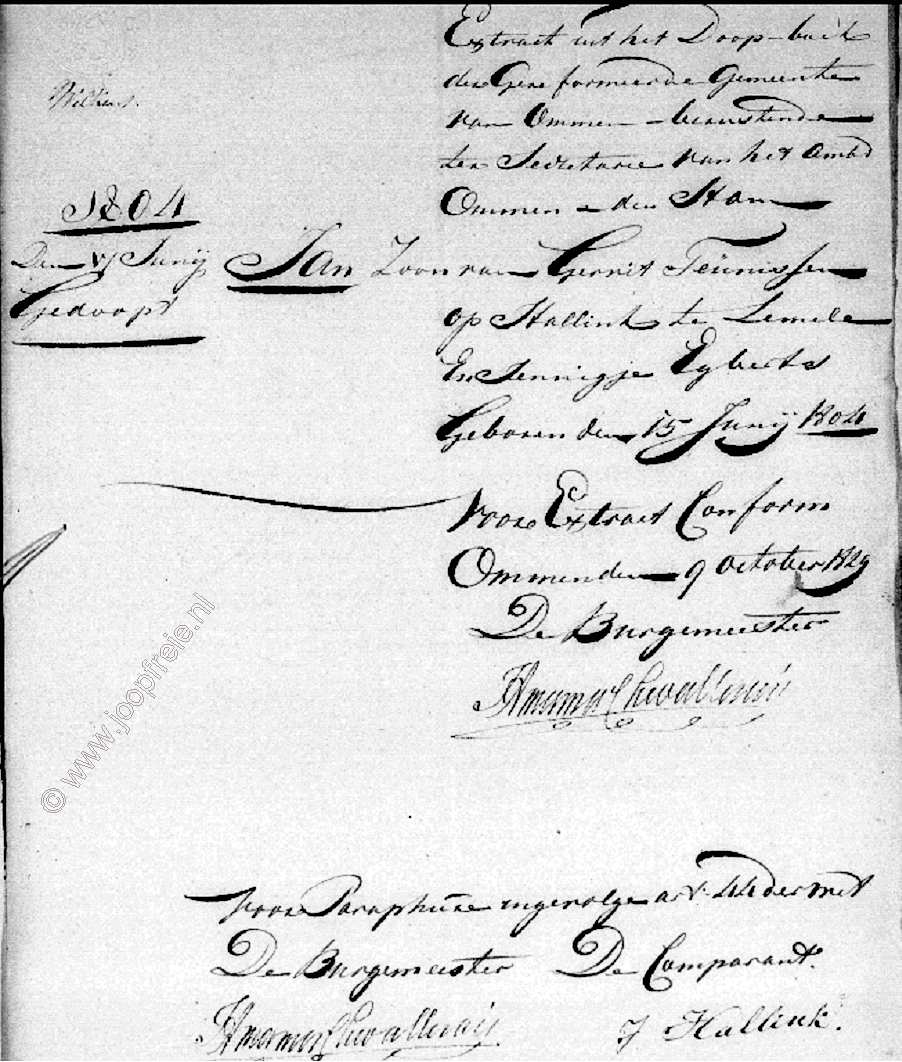 Extract uit het Doop-boek
der Gereformeerde Gemeente
van Ommen berustende
ter Secretarie van het Ambt
Ommen en den Ham
Wilkens.
1804
Den 17 Junij
Gedoopt
Jan Zoon van Gerrit Teünissen
op Hallink te Lemele
En Jennigje Egberts
Geboren den 15 Junij 1804
Voor Extract Conform
Ommen den 9 October 1829
De Burgemeester
Chevallerau
Voor Paraphure ingevolge art. 44 der Wet
De Burgemeester De Comparant.
Chevallerau J Hallink.
© www.joopfreie.nl